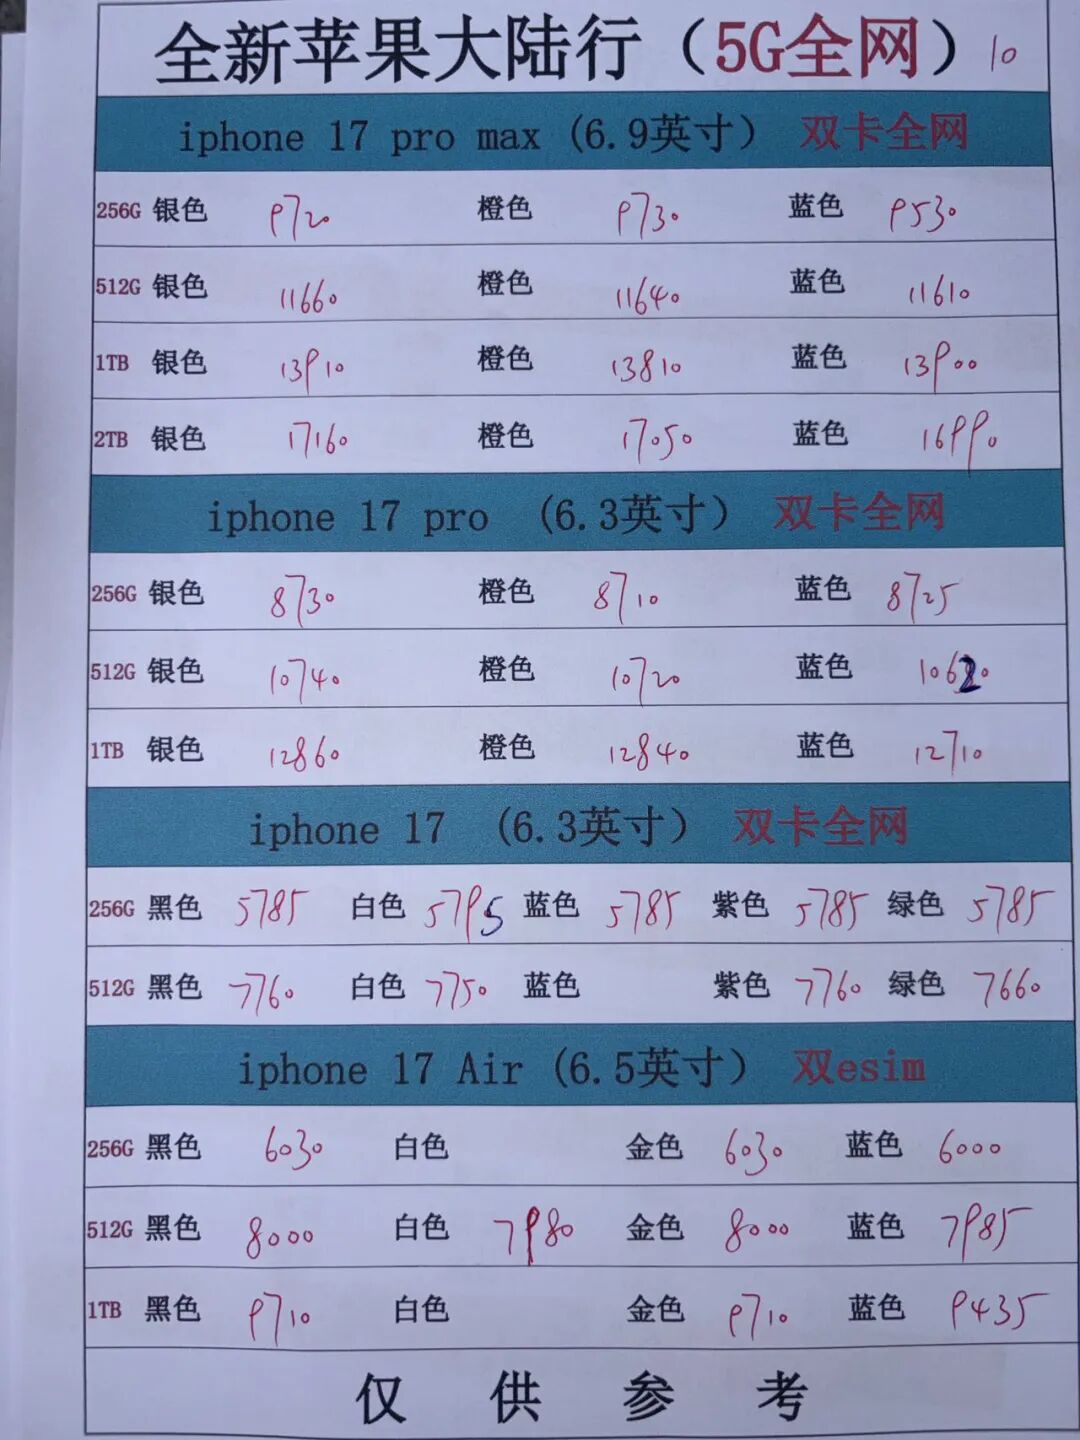 全新苹果大陆行（5G全网）10
iphone 17 pro max (6.9英寸） 双卡全网
256G 银色 9720 橙色 9730 蓝色 9530
512G 银色 11660 橙色 11640 蓝色 11610
1TB 银色 13910 橙色 13810 蓝色 13900
2TB 银色 17160 橙色 17050 蓝色 16990
iphone 17 pro （6.3英寸） 双卡全网
256G 银色 8730 橙色 8710 蓝色 8725
512G 银色 10740 橙色 10720 蓝色 10620
1TB 银色 12860 橙色 12840 蓝色 12710
iphone 17 （6.3英寸） 双卡全网
256G 黑色 5785 白色 5795 蓝色 5785 紫色 5785 绿色 5785
512G 黑色 7760 白色 7750 蓝色 紫色 7760 绿色 7660
iphone 17 Air (6.5英寸） 双esim
256G 黑色 6030 白色 金色 6030 蓝色 6000
512G 黑色 8000 白色 7980 金色 8000 蓝色 7985
1TB 黑色 9710 白色 金色 9710 蓝色 9435
仅供参考